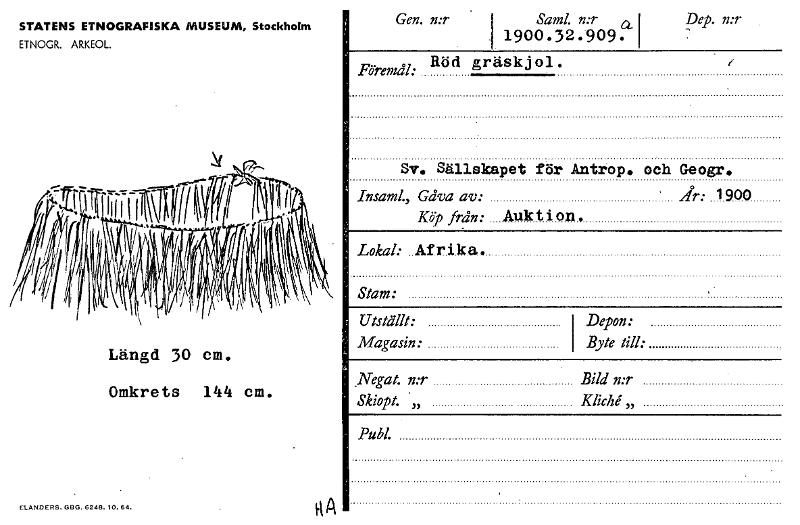 STATENS ETNOGRAFISKA MUSEUM, Stockholm
ETNOGR. ARKEOL.
Längd 30 cm.
Omkrets 144 cm.
ELANDERS. GBG. 6248. 10. 64.
HA
Gen. n:r
Saml. n:r
1900.32.909. a
Dep. n:r
Föremål: Röd gräskjol.
Sv. Sällskapet för Antrop. och Geogr.
Insaml., Gåva av: År: 1900
Köp från: Auktion.
Lokal: Afrika.
Stam:
Utställt: Depon:
Magasin: Byte till:
Negat. n:r Bild n:r
Skiopt. „ Kliché „
Publ.